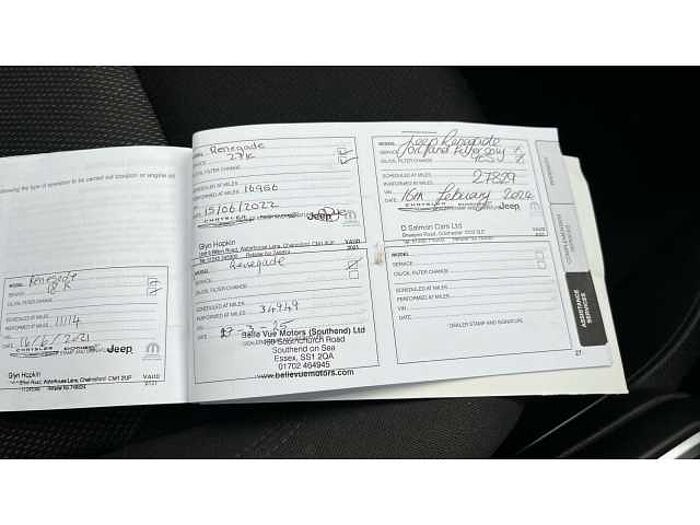 following the type of operation to be carried out
MODEL Renegade
SERVICE 18K
OIL/OIL FILTER CHANGE
SCHEDULED AT MILES
PERFORMED AT MILES 11114
VIN
DATE 16/6/2021
CHRYSLER Jeep
Glyn Hopkin
Chelmsford CM1 2UP
VAUD
2021
MODEL Renegade
SERVICE 27K
OIL/OIL FILTER CHANGE
SCHEDULED AT MILES
PERFORMED AT MILES 16956
VIN
DATE 15/06/2022
CHRYSLER Jeep
Glyn Hopkin
Chelmsford CM1 2UP
VAUD
MODEL Renegade
SERVICE
OIL/OIL FILTER CHANGE
SCHEDULED AT MILES
PERFORMED AT MILES 34949
VIN
DATE 27-3-25
Belle Vue Motors (Southend) Ltd
Southchurch Road
Southend on Sea
Essex, SS1 2QA
01702 464945
www.bellevuemotors.com
MODEL Jeep Renegade
SERVICE Oil and Filter only
OIL/OIL FILTER CHANGE YES
SCHEDULED AT MILES
PERFORMED AT MILES 27829
VIN
DATE 16th February 2024
CHRYSLER Jeep
D Salmon Cars Ltd
MODEL
SERVICE
OIL/OIL FILTER CHANGE
SCHEDULED AT MILES
PERFORMED AT MILES
VIN
DATE
DEALER STAMP AND SIGNATURE
27
ASSISTANCE
SERVICES